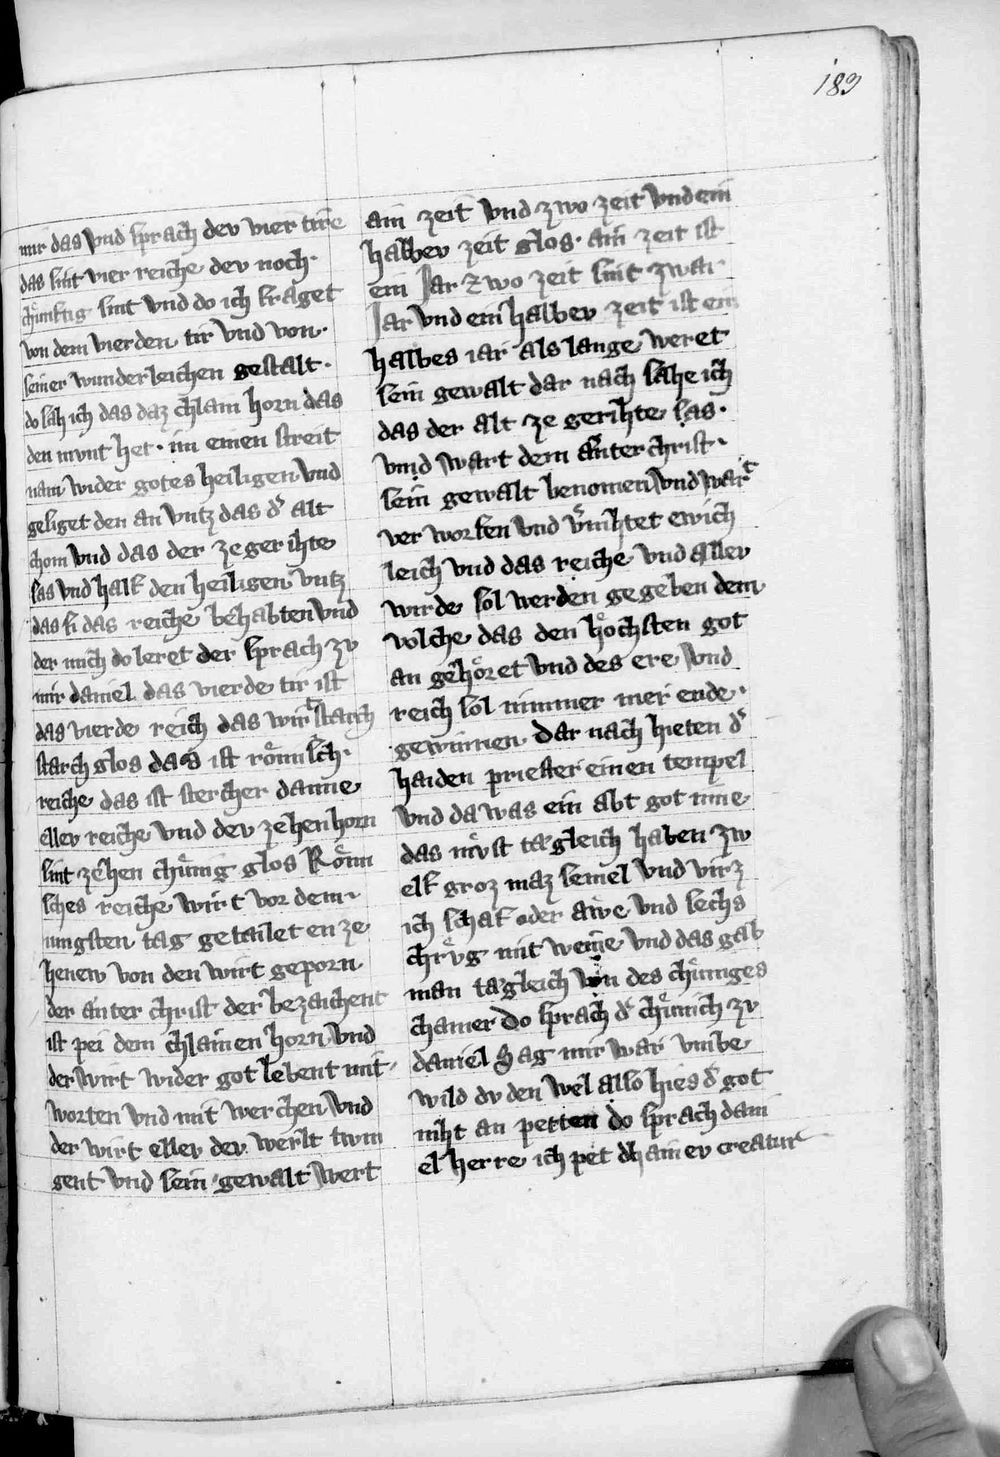 183
mir das vnd sprach der vier tire
das sint vier reiche der noch
chu̇nftig sint vnd do ich fraget
von dem vierden tir vnd von
seiner wunderleichen gestalt
do sah ich das daz chlain horn das
den mvnt het · im einen streit
nam wider gotes heiligen vnd
gesiget den an vntz das d͛ alt
chom vnd das der ze gerihte
sas vnd half den heiligen vntz
das si das reiche behabten vnd
der mich do leret der sprach zv
mir daniel das vierde tir ist
das vierde reich das wirt starch
starch glos das ist ro̊misch
reiche das ist stercher danne
eller reiche vnd der zehen horn
sint zehen chu̇nig glos Ro̊mi
sches reiche wirt vor dem
iungsten tag getailet en ze
henew von den wirt geporn
der anter christ der bezaichent
ist pei dem chlainen horn vnd
der wirt wider got lebent mit
worten vnd mit werchen vnd
der wirt eller der werlt twin
gent vnd sein gewalt wert
ain zeit vnd zwo zeit vnd ein
halber zeit glos · ain zeit ist
ein Jar zwo zeit sint zwai
Jar vnd ein halber zeit ist ein
halbes iar als lange weret
sein gewalt dar nach sahe ich
das der alt ze gerihte sas ·
vnd wart dem anter christ
sein gewalt benomen vnd wart
ver worfen vnd v͛nihtet ewich
leich vnd das reiche vnd aller
wirde sol werden gegeben dem
volche das den ho̊chsten got
an geho̊ret vnd des ere vnd
reich sol nimmer mer ende ·
gewinnen Dar nach hieten d͛
haiden priester einen tempel
vnd da was ein abt got inne
das mv̊st tægleich haben zw
elf groz maz semel vnd virz
ich schaf oder awe vnd sechs
chrv̊g mit weine vnd das gab
man tægleich von des chu̇niges
chamer Do sprach d͛ chu̇nich zv
daniel Sag mir war vmbe
wild dv den wel also hies d͛ got
niht an petten do sprach dani
el herre ich pet dhainer creatur